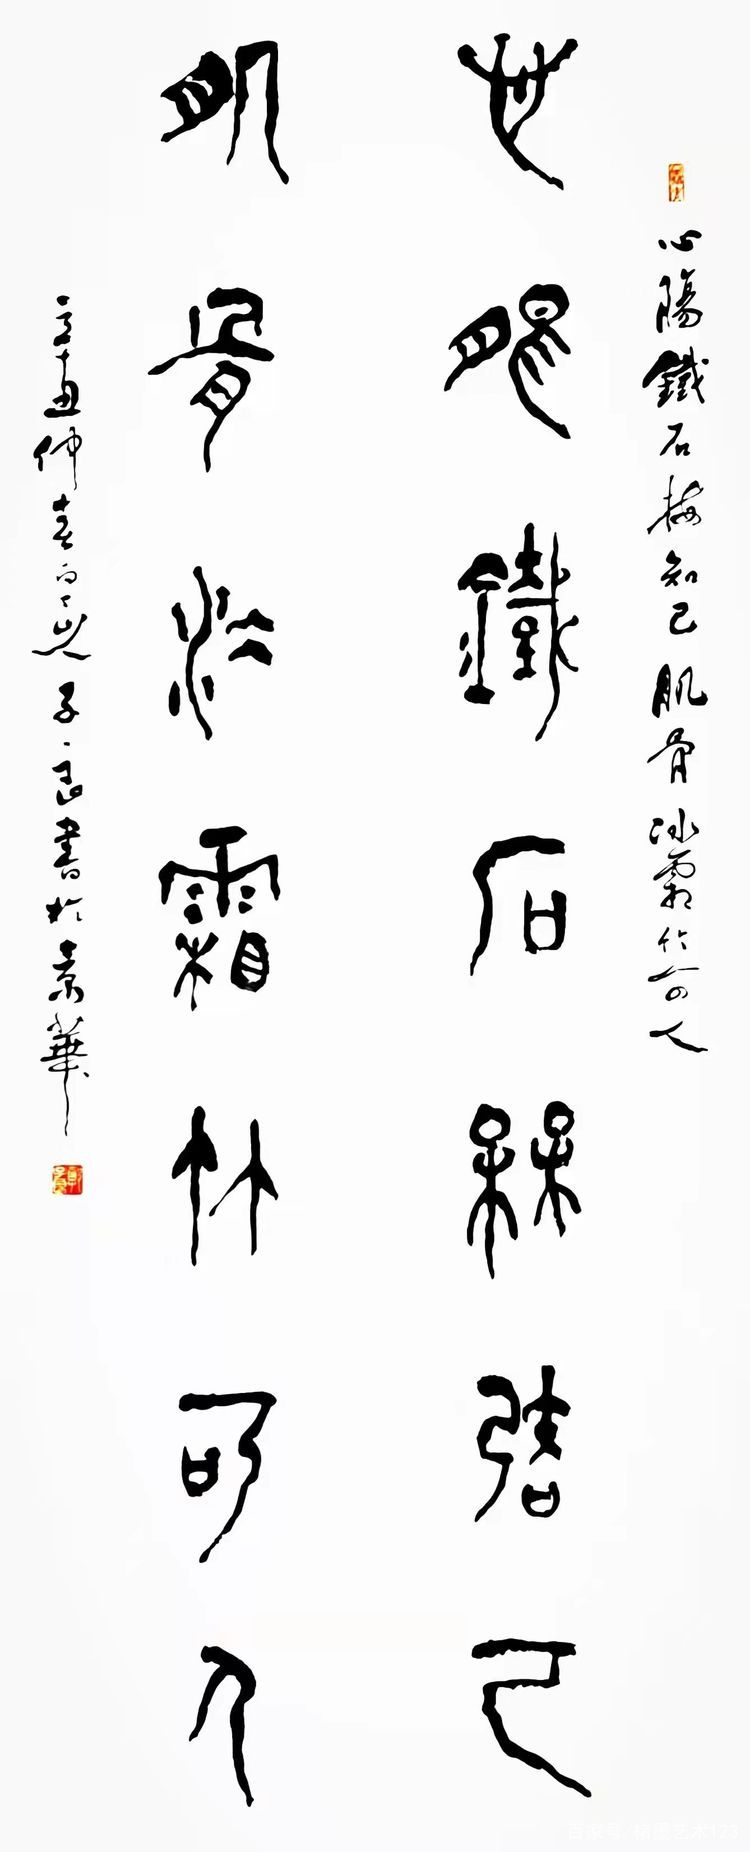 心腸鐵石梅知己肌骨冰霜竹可人
心腸鐵石梅知己
肌骨冰霜竹可人
辛丑仲春子良書於京華
百家号/艺术123